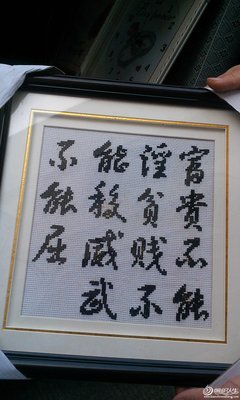 富貴不能
淫貧賤不
能移威武
不能屈